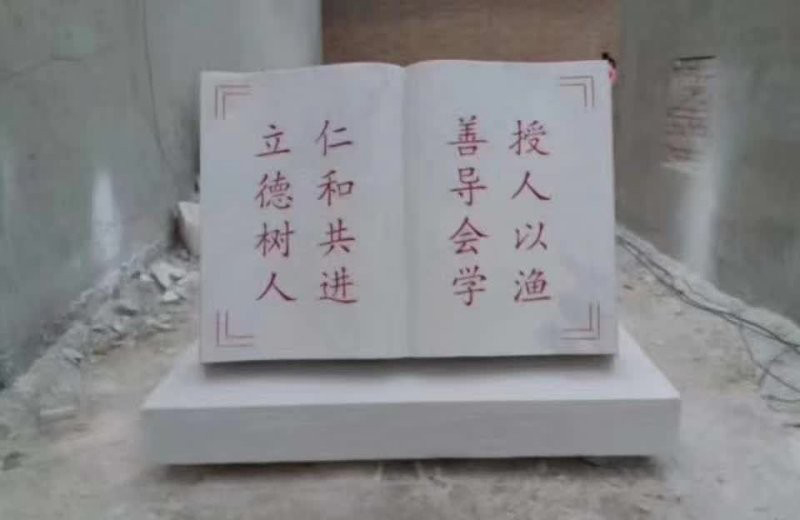 授人以渔
善导会学
仁和共进
立德树人